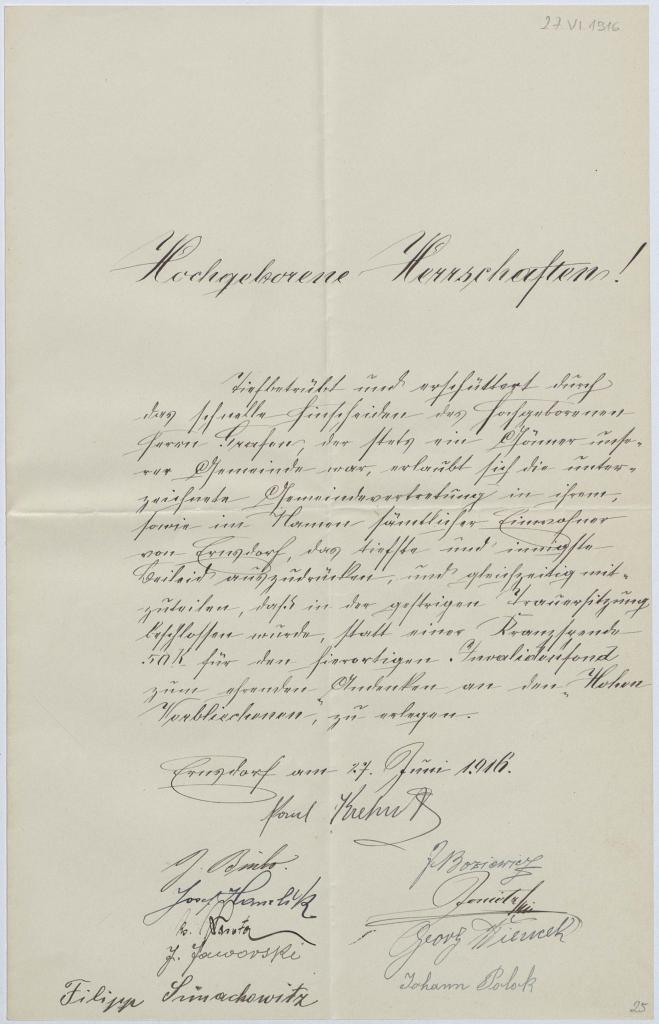 27.VI.1916
Hochgeborene Herrschaften!
Tiefbetrübt und erschüttert durch
das schnelle Hinscheiden des Hochgeborenen
Herrn Grafen, der stets ein Gönner unse-
rer Gemeinde war, erlaubt sich die unter-
zeichnete Gemeindevertretung in ihrem,
sowie im Namen sämtlicher Einwohner
von Ernsdorf, das tiefste und innigste
Beileid auszudrücken, und gleichzeitig mit-
zuteilen, daß in der gestrigen Trauersitzung
beschlossen wurde, statt einer Kranzspende
50 K für den hierortigen Invalidenfond
zum ehrenden Andenken an den „Hohen
Verbliechenen“, zu erlegen.
Ernsdorf am 27. Juni 1916.
Paul
J.
J. Boziewicz
Josef
Georg
J. Jaworski
Johann Polok
Filipp Simachowitz
25